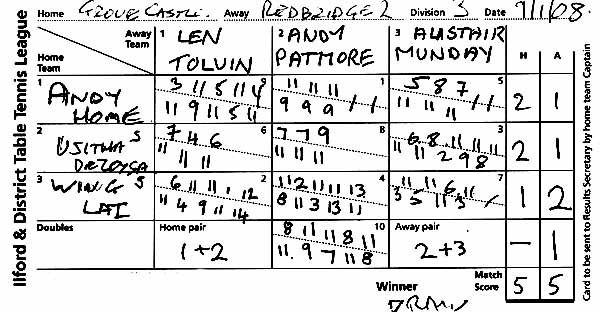 Home GROVE CASTLE. Away REDBRIDGE 2 Division 3 Date 7/1/08.
Ilford & District Table Tennis League
Away Team
Home Team
1 LEN TOLVIN
2 ANDY PATMORE
3 ALISTAIR MUNDAY
H A
1 ANDY HOME
3 11 5 11 4 9
11 9 11 5 11
11 11 11 1
9 9 9 / /
5 8 7 / / 5
11 11 11
2 1
2 USITHA DEZOYSA S
7 4 6 6
11 11 11
7 7 9 8
11 11 11
6 8 11 11 11 3
11 11 2 9 8
2 1
3 WING LAI S
6 11 11 12 2
11 4 9 11 14
11 2 11 11 13 4
8 11 3 13 11
11 11 6 11 7
3 5 11 3 /
1 2
Doubles
Home pair
1+2
8 11 11 8 11 10
11. 9 7 11 8
Away pair
2+3
— 1
Winner
DRAW
Match Score
5 5
Card to be sent to Results Secretary by home team Captain